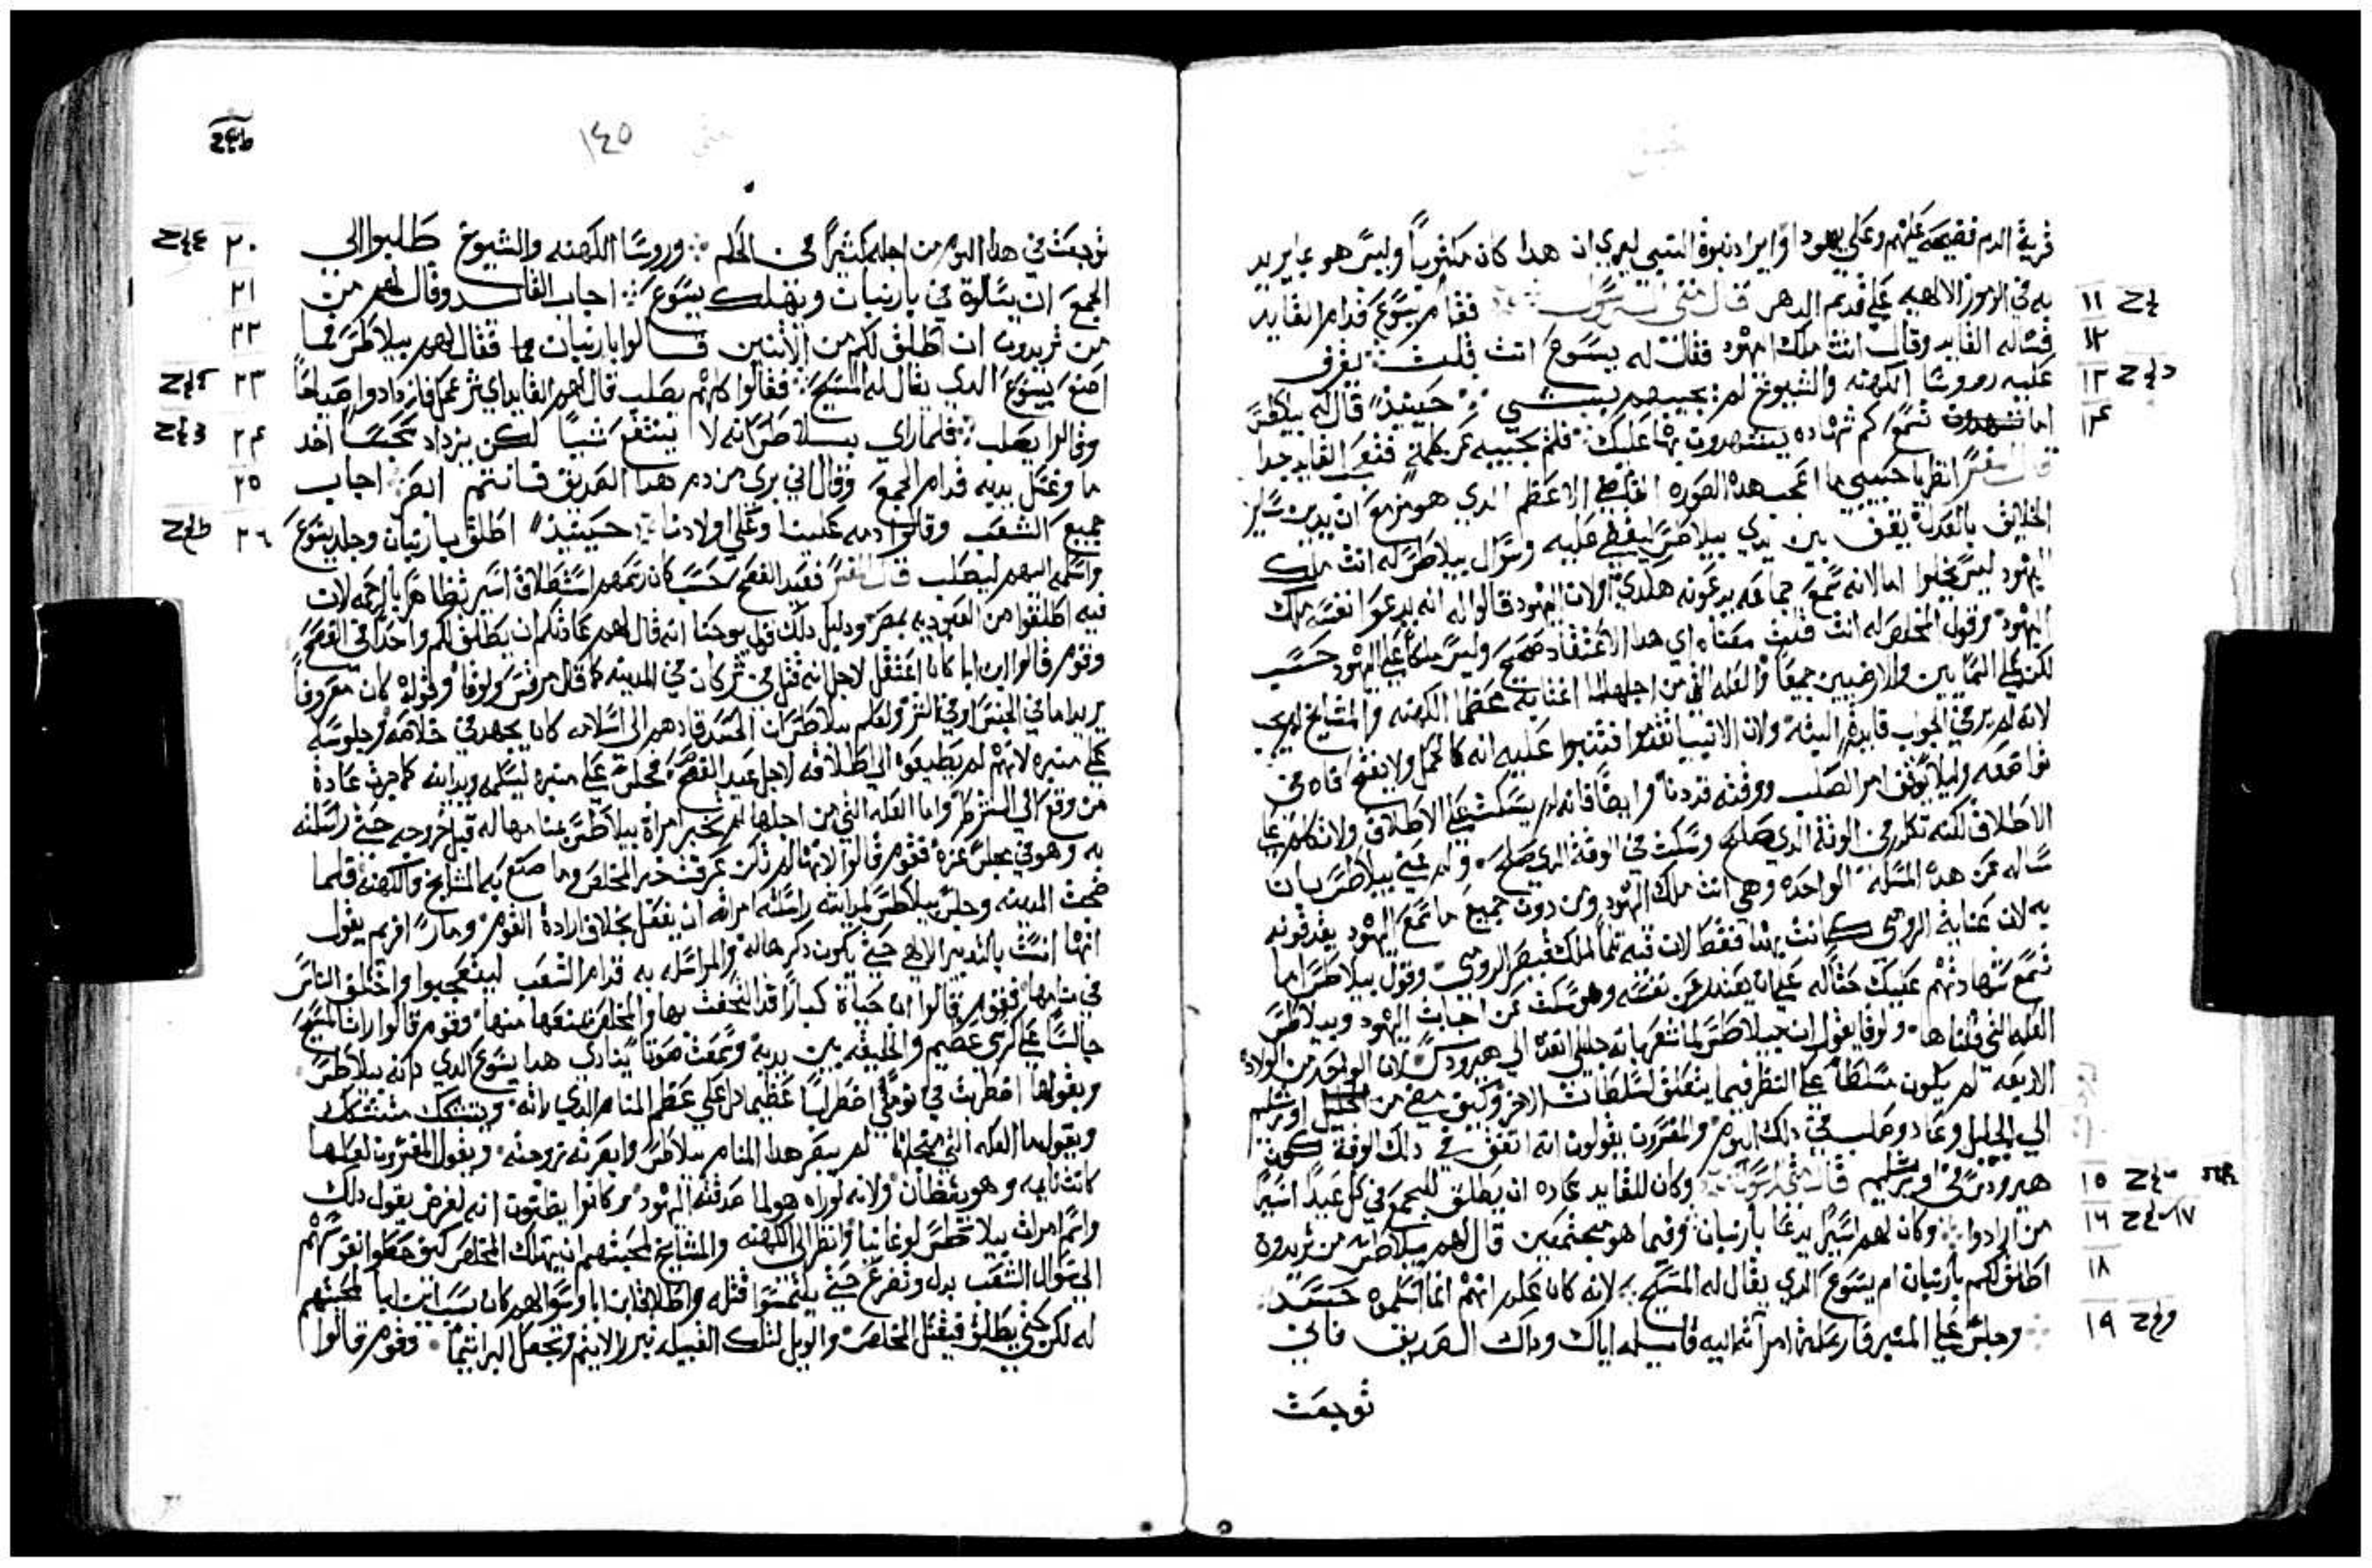 قرية الدم فضيحه عليهم وعلي يهودا وايراد نبوة النبي ليري ان هدا كان مكتوباً وليس هو عابريد
به في الرموز الالهيه علي قديم الدهر قال متي الرسول فقام يسوع قدام القايد
١١
فساله القايد وقال انت ملك اليهود فقال له يسوع انت قلت
١٢
عليه روسا الكهنه والشيوخ لم يجيبهم بشي حينيذ قال له بيلاطس
١٣
اما تسمع كم شهاده يشهدون بها عليك فلم يجيبه عن كلمة فتعجب القايد جدا
١٤
قال المفسر انظر يا حبيبي ما اعجب هده الصوره القاضي الاعظم الدي هو مزمع ان يدين ساير
الخلايق بالعدل يقف بين يدي بيلاطس ليقضي عليه وسوال بيلاطس له انت ملك
اليهود ليس يخلوا اما لانه سمع جماعه يدعونه هكدي اولان اليهود قالوا له انه يدعوا نفسه ملك
اليهود وقول المخلص له انت قلت معناه اي هدا الاعتقاد صحيح وليس ملكاً علي اليهود حسب
لكن علي السمايين والارضيين جميعاً والعله التي من اجلها عظما الكهنه والمشايخ لم يجب
لانه لم ير في الجواب فايدة البته ولان الانبيا تقدموا فتنبوا عليه انه كالحمل ولا يفتح فاه في
تواضعه وليلا امر الصلب ووقته قد دنا وايضاً فانه لم يسكت علي الاطلاق ولا تكلم علي
الاطلاق لكنه تكلم في الوقت الدي صلح وسكت في الوقت الدي صلح ولم عني بيلاطس بان
ساله عن هده المسله الواحده وهي انت ملك اليهود ومن دون جميع ما سمع اليهود يقدفونه
به لان عناية الرومي كانت بهدا فقط لان فيه ملك قيصر الرومي وقول بيلاطس اما
تسمع شهادتهم عليك حثاً له علي ان عن نفسه وهو سكت عن اجابت اليهود وبيلاطس
العله التي قلناها ولوقا يقول ان بيلاطس لما شعر بانه جليلي انفده الي هيرودس لان الواحد من الولاة
الاربعه لم يكون مسلطاً علي النظر فيما يتعلق بسلطان الاخر وكيف مضي من اورشليم
الي الجليل وعاد وصلب في دلك اليوم والمفسرون يقولون انه اتفق في دلك الوقت كون
هيرودس في اورشليم قال متي الرسول وكان للقايد عاده ان يطلق للجمع في كل عيد اسيراً
١٥
من ارادوا وكان لهم اسير يدعا بارنبان وفيما هو مجتمعين قال لهم بيلاطس من تريدون
١٦ ١٧
اطلق لكم بارنبان ام يسوع الدي يقال له المسيح لانه كان علم انهم انما اسلموه حسد
١٨
وجلس علي المنبر فارسلت امراته اليه قايله اياك وداك الصديق فاني
١٩
توجعت
١٤٥
توجعت في هدا اليوم من اجله كثيراً في الحلم وروسا الكهنه والشيوخ طلبوا الي
٢٠
الجمع ان يسالوه في بارنبان ويهلك يسوع اجاب القايد وقال لهم من
٢١
من تريدون ان اطلق لكم من الاثنين قالوا بارنبان فقال لهم بيلاطس فما
٢٢
اصنع بيسوع الدي يقال له المسيح فقالوا كلهم يصلب قال لهم القايد اي شر عمل فازدادوا صياحاً
٢٣
وقالوا يصلب فلما راي بيلاطس انه لا ينتفع شياً لكن يزداد سجساً اخد
٢٤
ما وغسل يديه قدام الجمع وقال اني بري من دم هدا الصديق فانتم ابصر اجاب
٢٥
جميع الشعب وقالوا دمه علينا وعلي اولادنا حينيذ اطلق بارنبان وجلد يسوع
٢٦
واسلمه اليهم ليصلب قال المفسر فعيد الفصح حسب كان رسمهم استطلاق اسير تظاهراً بالرحمه لان
فيه اطلقوا من العبوديه بمصر ودليل دلك قول يوحنا انه قال لهم عادتكم ان يطلق لكم واحداً في الفصح
وقوم قالوا ابن ابا كان اعتقل لاجل انه قتل في شر كان في المدينه كما قال مرقس ولوقا وقوله كان معروفاً
يريد اما في الجنس او في الشر ولعلم بيلاطس ان الحسد قادهم الي اسلامه كان يجهد في خلاصه وجلوسه
علي منبره لانهم لم يطيعوه الي اطلاقه لاجل عيد الفصح فجلس علي منبره ليسلمه كما جرت عادة
من وقع الي الشرط واما العله التي من اجلها لم تخبر امراة بيلاطس بمنامها له قبل خروجه حتي راسلته
به وهو في مجلس عزه فقوم قالوا لانها لم تكن عرفت خبر المخلص وما صنع به المشايخ والكهنة فلما
ضجت المدينه وجلس بيلاطس راسلته امراته ان يفعل بخلاف ارادة القوم ومار افريم يقول
انها انست بالتدبير الالهي حتي يكون دكر هاله والمراسله به قدام الشعب ليتعجبوا واختلف الناس
في منامها فقوم قالوا ان حياة كباراً قد التحفت بها والمخلص يمنعها منها وقوم قالوا رات المسيح
جالساً علي كرسي عظيم والخليقه بين يديه وسمعت صوتاً ينادي هدا يسوع الدي دانه بيلاطس
وبقولها اضطربت في نومي اضطراباً عظيماً دل علي عظم المنام الدي راته ويتشكك متشكك
ويقول ما العله التي من اجلها لم يبصر هدا المنام بيلاطس وابصرته زوجته ويقول المفسرون لعلها
كانت نايمه وهو يقظان ولانه لو راه هو لما صدقته اليهود وكانوا يظنون انه لغرض يقول دلك
الي سوال الشعب بدل وتضرع حتي يلتمسوا قتله واطلاق ابن ابا وسوالهم كان بسبب ابن ابا لمحبتهم
له لكن كي يطلق فيقتل المخلص والويل لتلك القبيله تبرر الاثيم وتجعل البر اثيماً وقوم قالوا